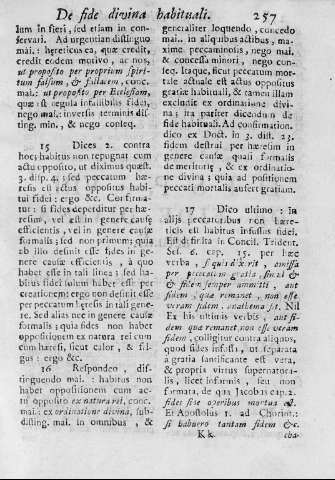 De fide divina habituali. 257
lum in fieri, sed etiam in con-
servari. Ad urgentiam distinguo
mai.: hæreticus ea, quæ credit,
credit eodem motivo, ac nos,
ut proposito per proprium spiri-
tum falsum, & fallacem, conc.
mai.: ut proposito per Ecclesiam,
quæ est regula infallibilis fidei,
nego mai.: inversis terminis dist-
ting. min., & nego conseq.
15 Dices 2. contra
hoc: habitus non repugnat cum
actu opposito, ut diximus quæst.
3. disp. 4.; sed peccatum hæ-
resis est actus oppositus habi-
tui fidei: ergo &c. Confirma-
tur: si fides deperditur per hæ-
resim, vel est in genere causæ
efficientis, vel in genere causæ
formalis; sed non primum; quia
ab illo desinit esse fides in ge-
nere causæ efficientis, à quo
habet esse in tali linea; sed ha-
bitus fidei solum habet esse per
creationem; ergo non desinit esse
per peccatum hæresis in tali gene-
re. Sed alias nec in genere causæ
formalis; quia fides non habet
oppositionem ex natura rei cum
cum hæresi, sicut calor, & fri-
gus: ergo &c.
16 Respondeo, dis-
tinguendo mai.: habitus non
habet oppositionem cum ac-
tu opposito ex natura rei, conc.
mai.: ex ordinatione divina, sub-
disting. mai. in omnibus, &
generaliter loquendo, concedo
mai.: in aliquibus actibus, ma-
xime peccaminosis, nego mai.
& concessa minori, nego con-
seq. Itaque, sicut peccatum mor-
tale actuale est actus oppositus
gratiæ habituali, & tamen illam
excludit ex ordinatione divi-
na; ita pariter dicendum de
fide habituali. Ad confirmation.
dico ex Doct. in 3. dist. 23.
fidem destrui per hæresim in
genere causæ quasi formalis
de meritoriè, & ex ordinatio-
ne divina; quia ad positionem
peccati mortalis aufert gratiam.
17 Dico ultimo: In
alijs peccatoribus non hære-
ticis est habitus infusus fidei.
Est definita in Concil. Trident.
Ses. 6. cap. 15. per hæc
verba, si quis dixerit, amissa
per peccatum gratia, simul &
& fidem semper amitti, aut
fidem, quæ remanet, non esse
veram fidem, anathema sit. Nil
Ex his ultimis verbis, aut fi-
dem quæ remanet non esse veram
fidem, colligitur contra aliquos,
quod fides infusa, ut separata
a gratia sanctificante est vera,
& propriis virtus supernatura-
lis, licet informis, seu non
formata, de qua Jacobus cap. 2.
fides sine operibus mortua est.
Et Apostolus 1. ad Chorint.:
si habuero tantam fidem &c.
Kk cha-